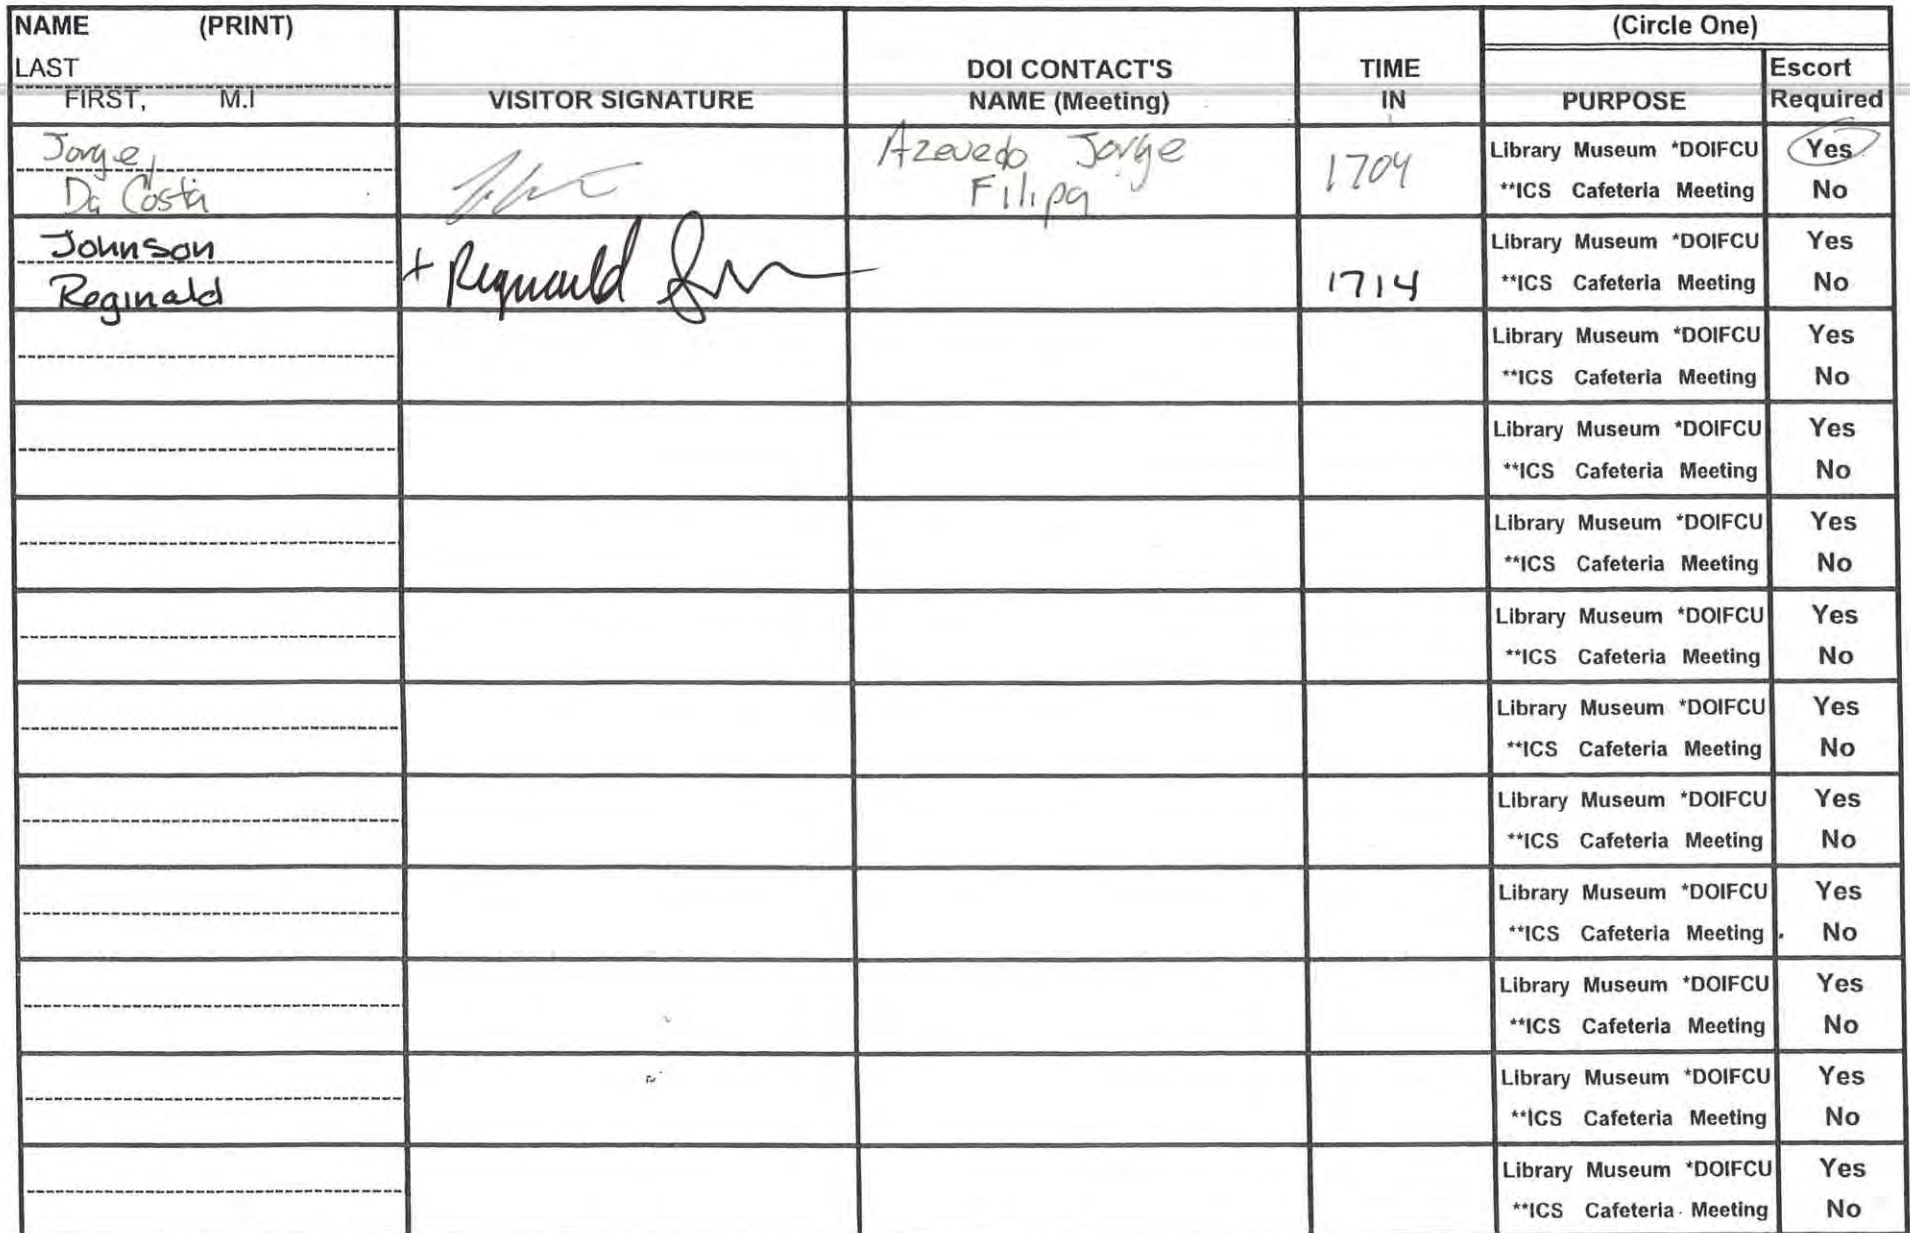 NAME (PRINT)
LAST
FIRST, M.I
VISITOR SIGNATURE
DOI CONTACT'S
NAME (Meeting)
TIME
IN
(Circle One)
PURPOSE
Escort
Required
Jorge,
Da Costa
Azevedo Jorge
Filipa
1704
Library Museum *DOIFCU Yes
**ICS Cafeteria Meeting No
Johnson
Reginald
+ Reginald
1714
Library Museum *DOIFCU Yes
**ICS Cafeteria Meeting No
Library Museum *DOIFCU Yes
**ICS Cafeteria Meeting No
Library Museum *DOIFCU Yes
**ICS Cafeteria Meeting No
Library Museum *DOIFCU Yes
**ICS Cafeteria Meeting No
Library Museum *DOIFCU Yes
**ICS Cafeteria Meeting No
Library Museum *DOIFCU Yes
**ICS Cafeteria Meeting No
Library Museum *DOIFCU Yes
**ICS Cafeteria Meeting No
Library Museum *DOIFCU Yes
**ICS Cafeteria Meeting No
Library Museum *DOIFCU Yes
**ICS Cafeteria Meeting No
Library Museum *DOIFCU Yes
**ICS Cafeteria Meeting No
Library Museum *DOIFCU Yes
**ICS Cafeteria Meeting No